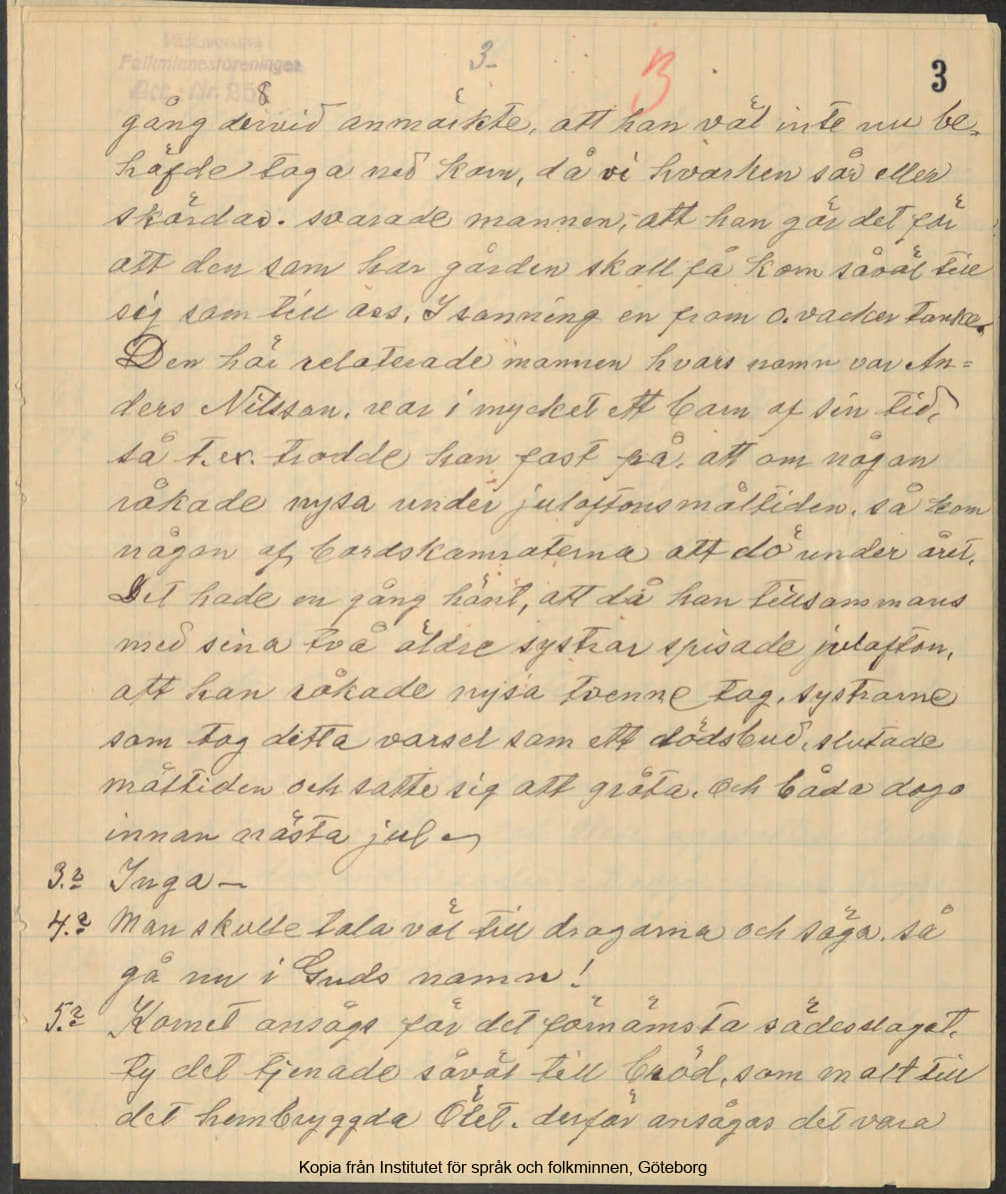 Västsvenska
Folkminnesföreningen
Acc. Nr. 258
3
3
gång dervid anmärkte, att han väl inte nu be-
höfde taga ned korn, då vi hvarken sår eller
skördar. svarade mannen, att han gör det för
att den som har gården skall få korn såväl till
sig som till oss. I sanning en from o. vacker tanke.
Den här relaterade mannen hvars namn var An=
ders Nilsson. var i mycket ett barn af sin tid,
så t.ex. trodde han fast på, att om någon
råkade nysa under julaftonsmåltiden. så kom
någon af bordskamraterna att dö under året.
Det hade en gång hänt, att då han tillsammans
med sina två äldre systrar spisade julafton,
att han råkade nysa tvenne tag, systrarne
som tog detta varsel som ett dödsbud, slutade
måltiden och satte sig att gråta. och båda dogo
innan nästa jul
3.? Inga —
4.? Man skulle tala väl till dragarna och säga. så
gå nu i Guds namn!
5.? Kornet ansågs för det förnämsta sädesslaget,
ty det tjenade såväl till bröd, som malt till
det hembryggda Ölet. derför ansågas det vara
Kopia från Institutet för språk och folkminnen, Göteborg